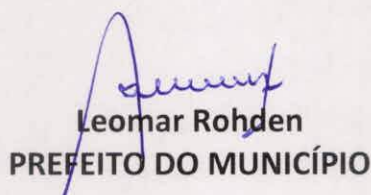 Leomar Rohden
PREFEITO DO MUNICÍPIO